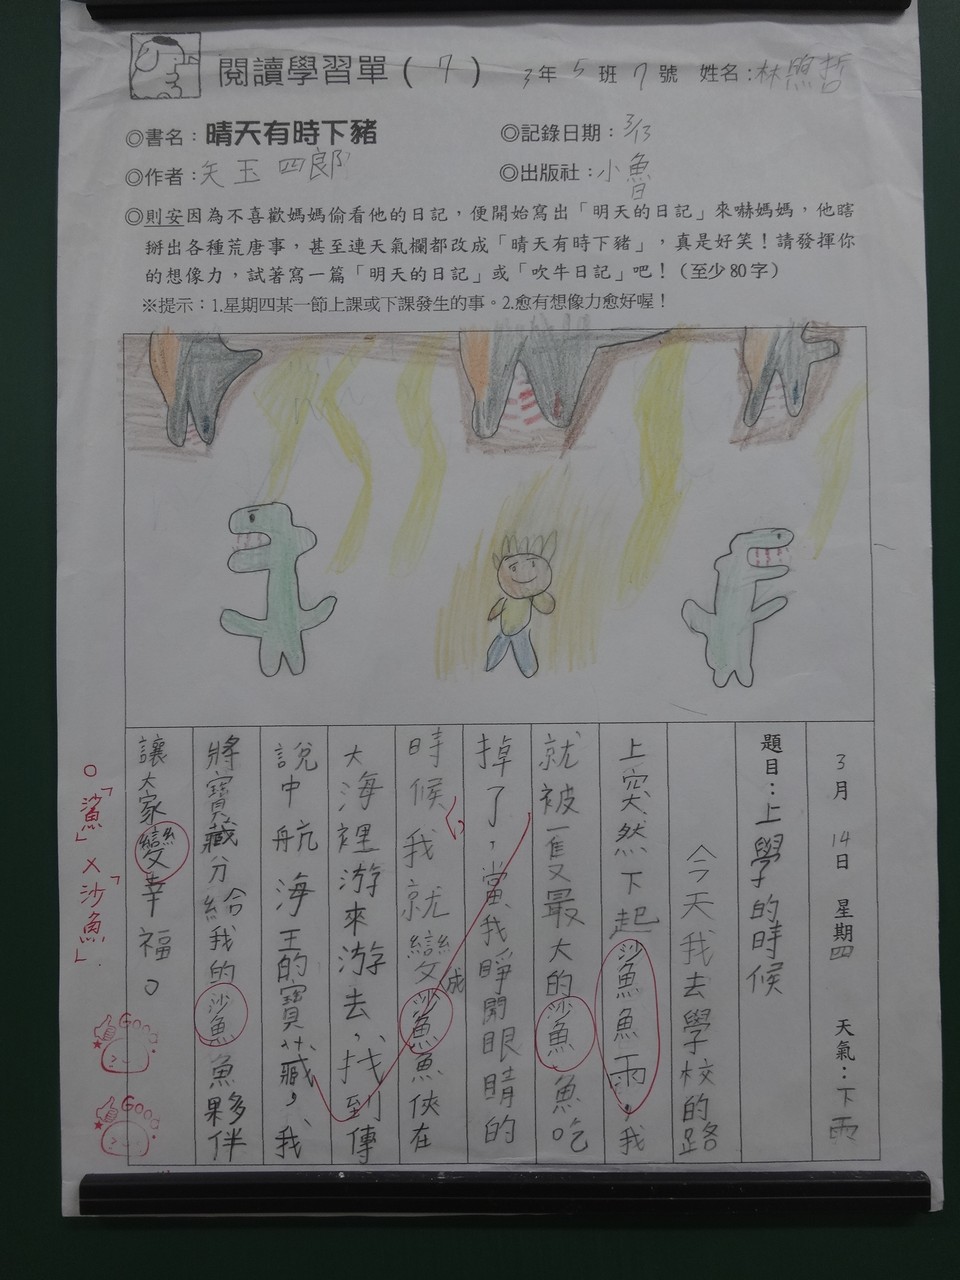 閱讀學習單(7) 3年5班7號 姓名:林煦哲
◎書名:晴天有時下豬 ◎記錄日期:3/13
◎作者:矢玉四郎 ◎出版社:小魯
◎則安因為不喜歡媽媽偷看他的日記,便開始寫出「明天的日記」來嚇媽媽,他瞎
掰出各種荒唐事,甚至連天氣欄都改成「晴天有時下豬」,真是好笑!請發揮你
的想像力,試著寫一篇「明天的日記」或「吹牛日記」吧!(至少80字)
※提示:1.星期四某一節上課或下課發生的事。2.愈有想像力愈好喔!
3月14日 星期四 天氣:下雨
題目:上學的時候
今天我去學校的路
上突然下起鯊魚雨,我
就被一隻最大的鯊魚吃
掉了,當我睜開眼睛的
時候,我就變成鯊魚俠在
大海裡游來游去,找到傳
說中航海王的寶藏,我
將寶藏分給我的鯊魚夥伴
讓大家變幸福。
○「鯊」×「沙魚」
Good
Good